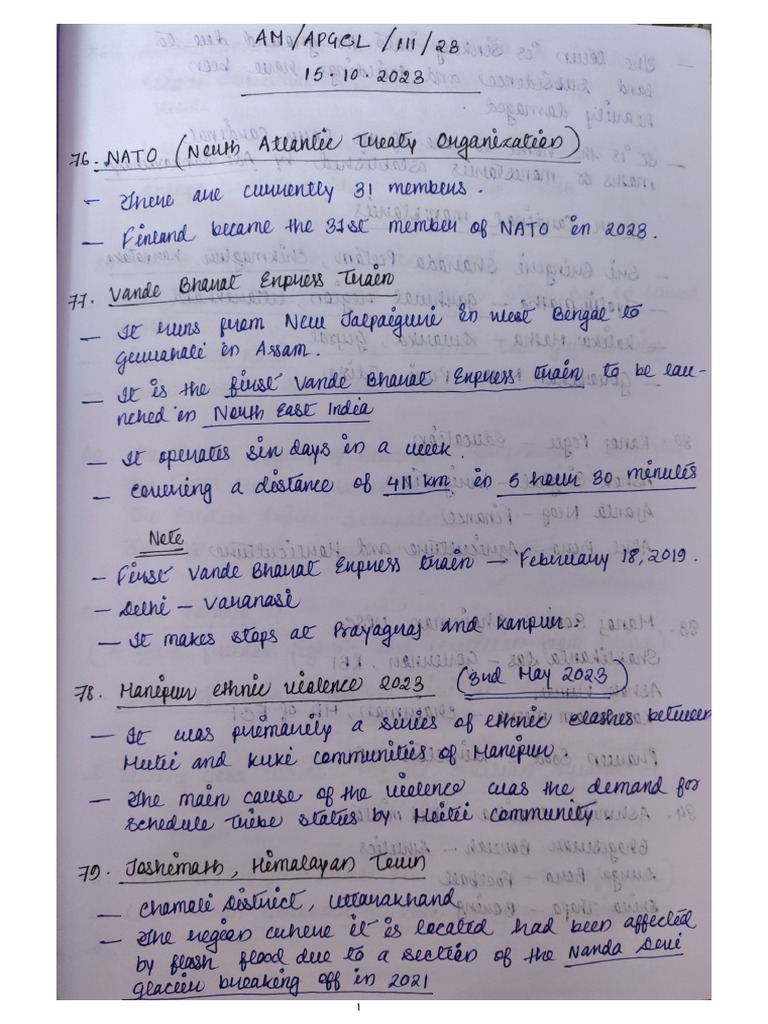 AM/APGCL/III/23
15.10.2023
76. NATO (North Atlantic Treaty Organization)
– There are currently 31 members.
– Finland became the 31st member of NATO in 2023.
77. Vande Bharat Express Train
– It runs from New Jalpaiguri in West Bengal to
Guwahati in Assam.
– It is the first Vande Bharat Express train to be lau-
nched in North East India
– It operates six days in a week.
– Covering a distance of 411 km in 5 hour 30 minutes
Note
– First Vande Bharat Express train – February 18, 2019.
– Delhi – Varanasi
– It makes stops at Prayagraj and Kanpur.
78. Manipur ethnic violence 2023 (3rd May 2023)
– It was primarily a series of ethnic clashes between
Meitei and Kuki communities of Manipur.
– The main cause of the violence was the demand for
Schedule Tribe status by Meitei community.
79. Joshimath, Himalayan Town
– Chamoli District, Uttarakhand
– The region where it is located had been affected
by flash flood due to a section of the Nanda Devi
glacier breaking off in 2021
1